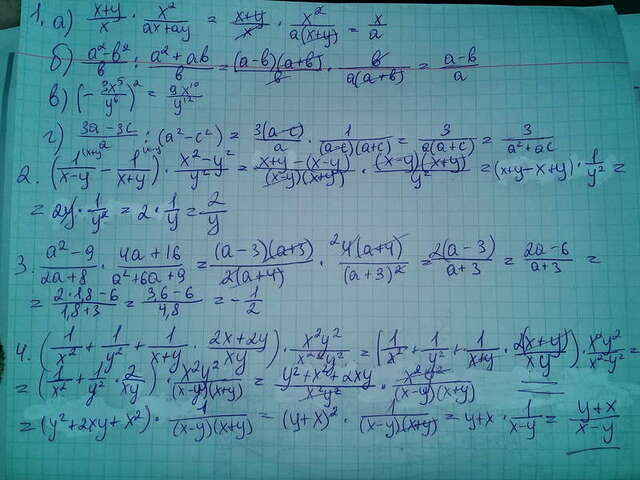 1. а) \frac{x+y}{x} \cdot \frac{x^2}{ax+ay} = \frac{x+y}{x} \cdot \frac{x^2}{a(x+y)} = \frac{x}{a}
б) \frac{a^2-b^2}{b} : \frac{a^2+ab}{b} = \frac{(a-b)(a+b)}{b} \cdot \frac{b}{a(a+b)} = \frac{a-b}{a}
в) (-\frac{3x^5}{y})^2 = \frac{9x^{10}}{y^2}
г) \frac{3a-3c}{a} : (a^2-c^2) = \frac{3(a-c)}{a} \cdot \frac{1}{(a-c)(a+c)} = \frac{3}{a(a+c)} = \frac{3}{a^2+ac}
2. (\frac{1}{x-y} - \frac{1}{x+y}) \cdot \frac{x^2-y^2}{y^2} = \frac{x+y-(x-y)}{(x-y)(x+y)} \cdot \frac{(x-y)(x+y)}{y^2} = (x+y-x+y) \cdot \frac{1}{y^2} =
= 2y \cdot \frac{1}{y^2} = 2 \cdot \frac{1}{y} = \frac{2}{y}
3. \frac{a^2-9}{2a+8} \cdot \frac{4a+16}{a^2+6a+9} = \frac{(a-3)(a+3)}{2(a+4)} \cdot \frac{4(a+4)}{(a+3)^2} = \frac{2(a-3)}{a+3} = \frac{2a-6}{a+3} =
= \frac{2 \cdot 1,8-6}{1,8+3} = \frac{3,6-6}{4,8} = -\frac{1}{2}
4. (\frac{1}{x^2} + \frac{1}{y^2} + \frac{1}{x+y} \cdot \frac{2x+2y}{xy}) \cdot \frac{x^2y^2}{x^2-y^2} = (\frac{1}{x^2} + \frac{1}{y^2} + \frac{1}{x+y} \cdot \frac{2(x+y)}{xy}) \cdot \frac{x^2y^2}{x^2-y^2} =
= (\frac{1}{x^2} + \frac{1}{y^2} + \frac{2}{xy}) \cdot \frac{x^2y^2}{(x-y)(x+y)} = \frac{y^2+x^2+2xy}{x^2y^2} \cdot \frac{x^2y^2}{(x-y)(x+y)} =
= (y^2+2xy+x^2) \cdot \frac{1}{(x-y)(x+y)} = (y+x)^2 \cdot \frac{1}{(x-y)(x+y)} = y+x \cdot \frac{1}{x-y} = \frac{y+x}{x-y}